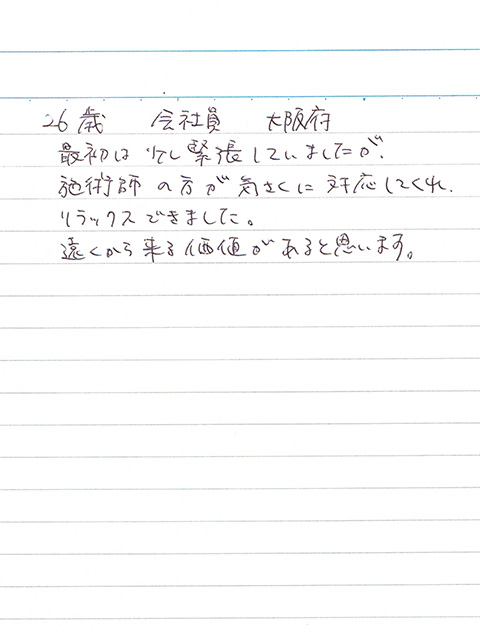 26歳 会社員 大阪府
最初は少し緊張していましたが、
施術師の方が気さくに対応してくれ、
リラックスできました。
遠くから来る価値があると思います。